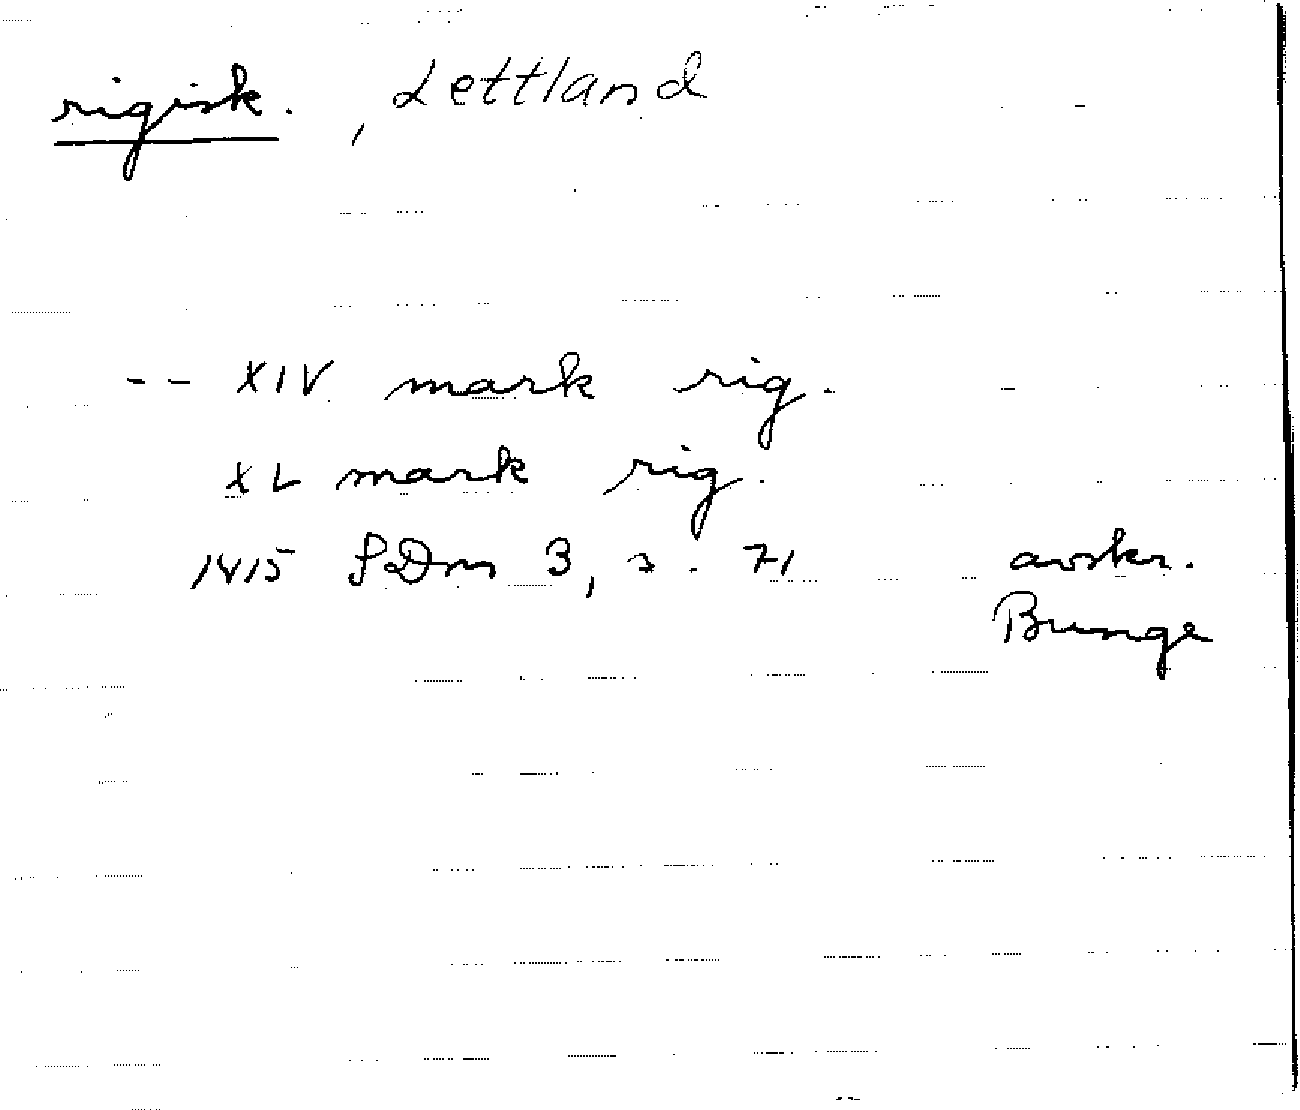 rigisk. , Lettland
-- XIV mark rig.
XL mark rig.
1415 SDns 3, s. 71 avskr.
Bunge